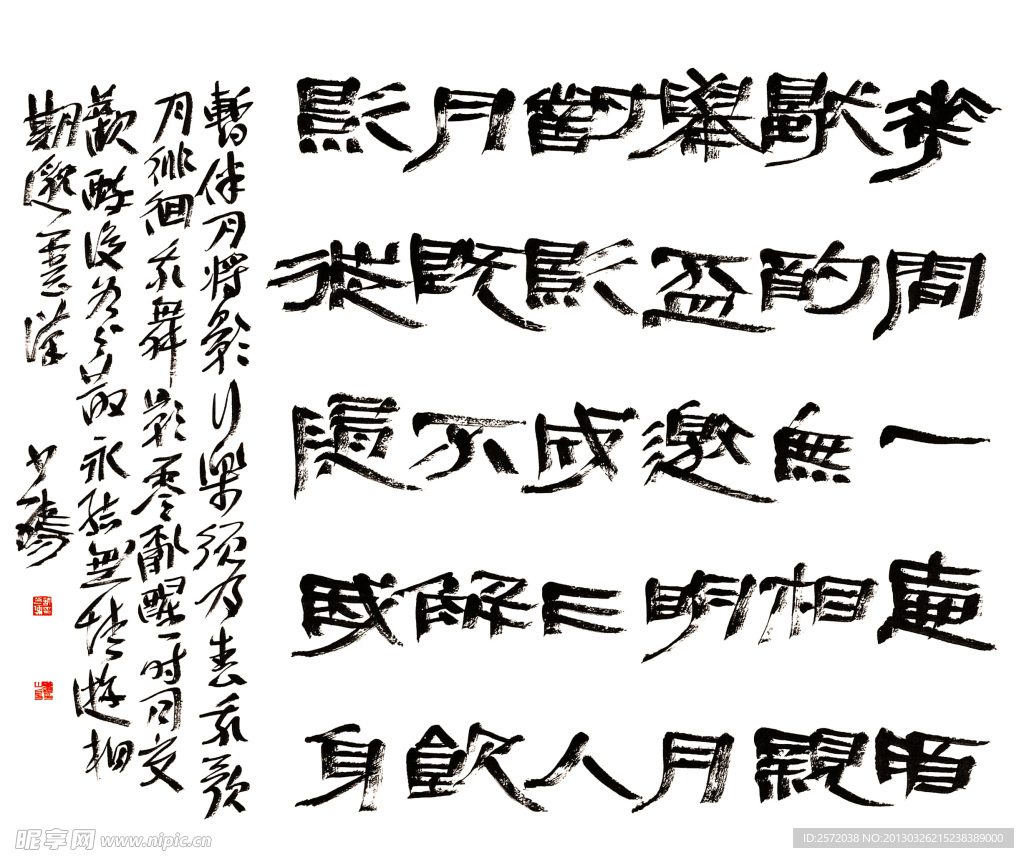 華間一壺酒
獨酌無相親
舉盃邀明月
對影成三人
月既不解飲
影徒隨我身
暫伴月將影行樂須及春我歌
月徘徊我舞影零亂醒時同交
歡醉後各分散永結無情遊相
期邈雲漢
昵享网 www.nipic.cn
ID:2572038 NO:20130326215238389000